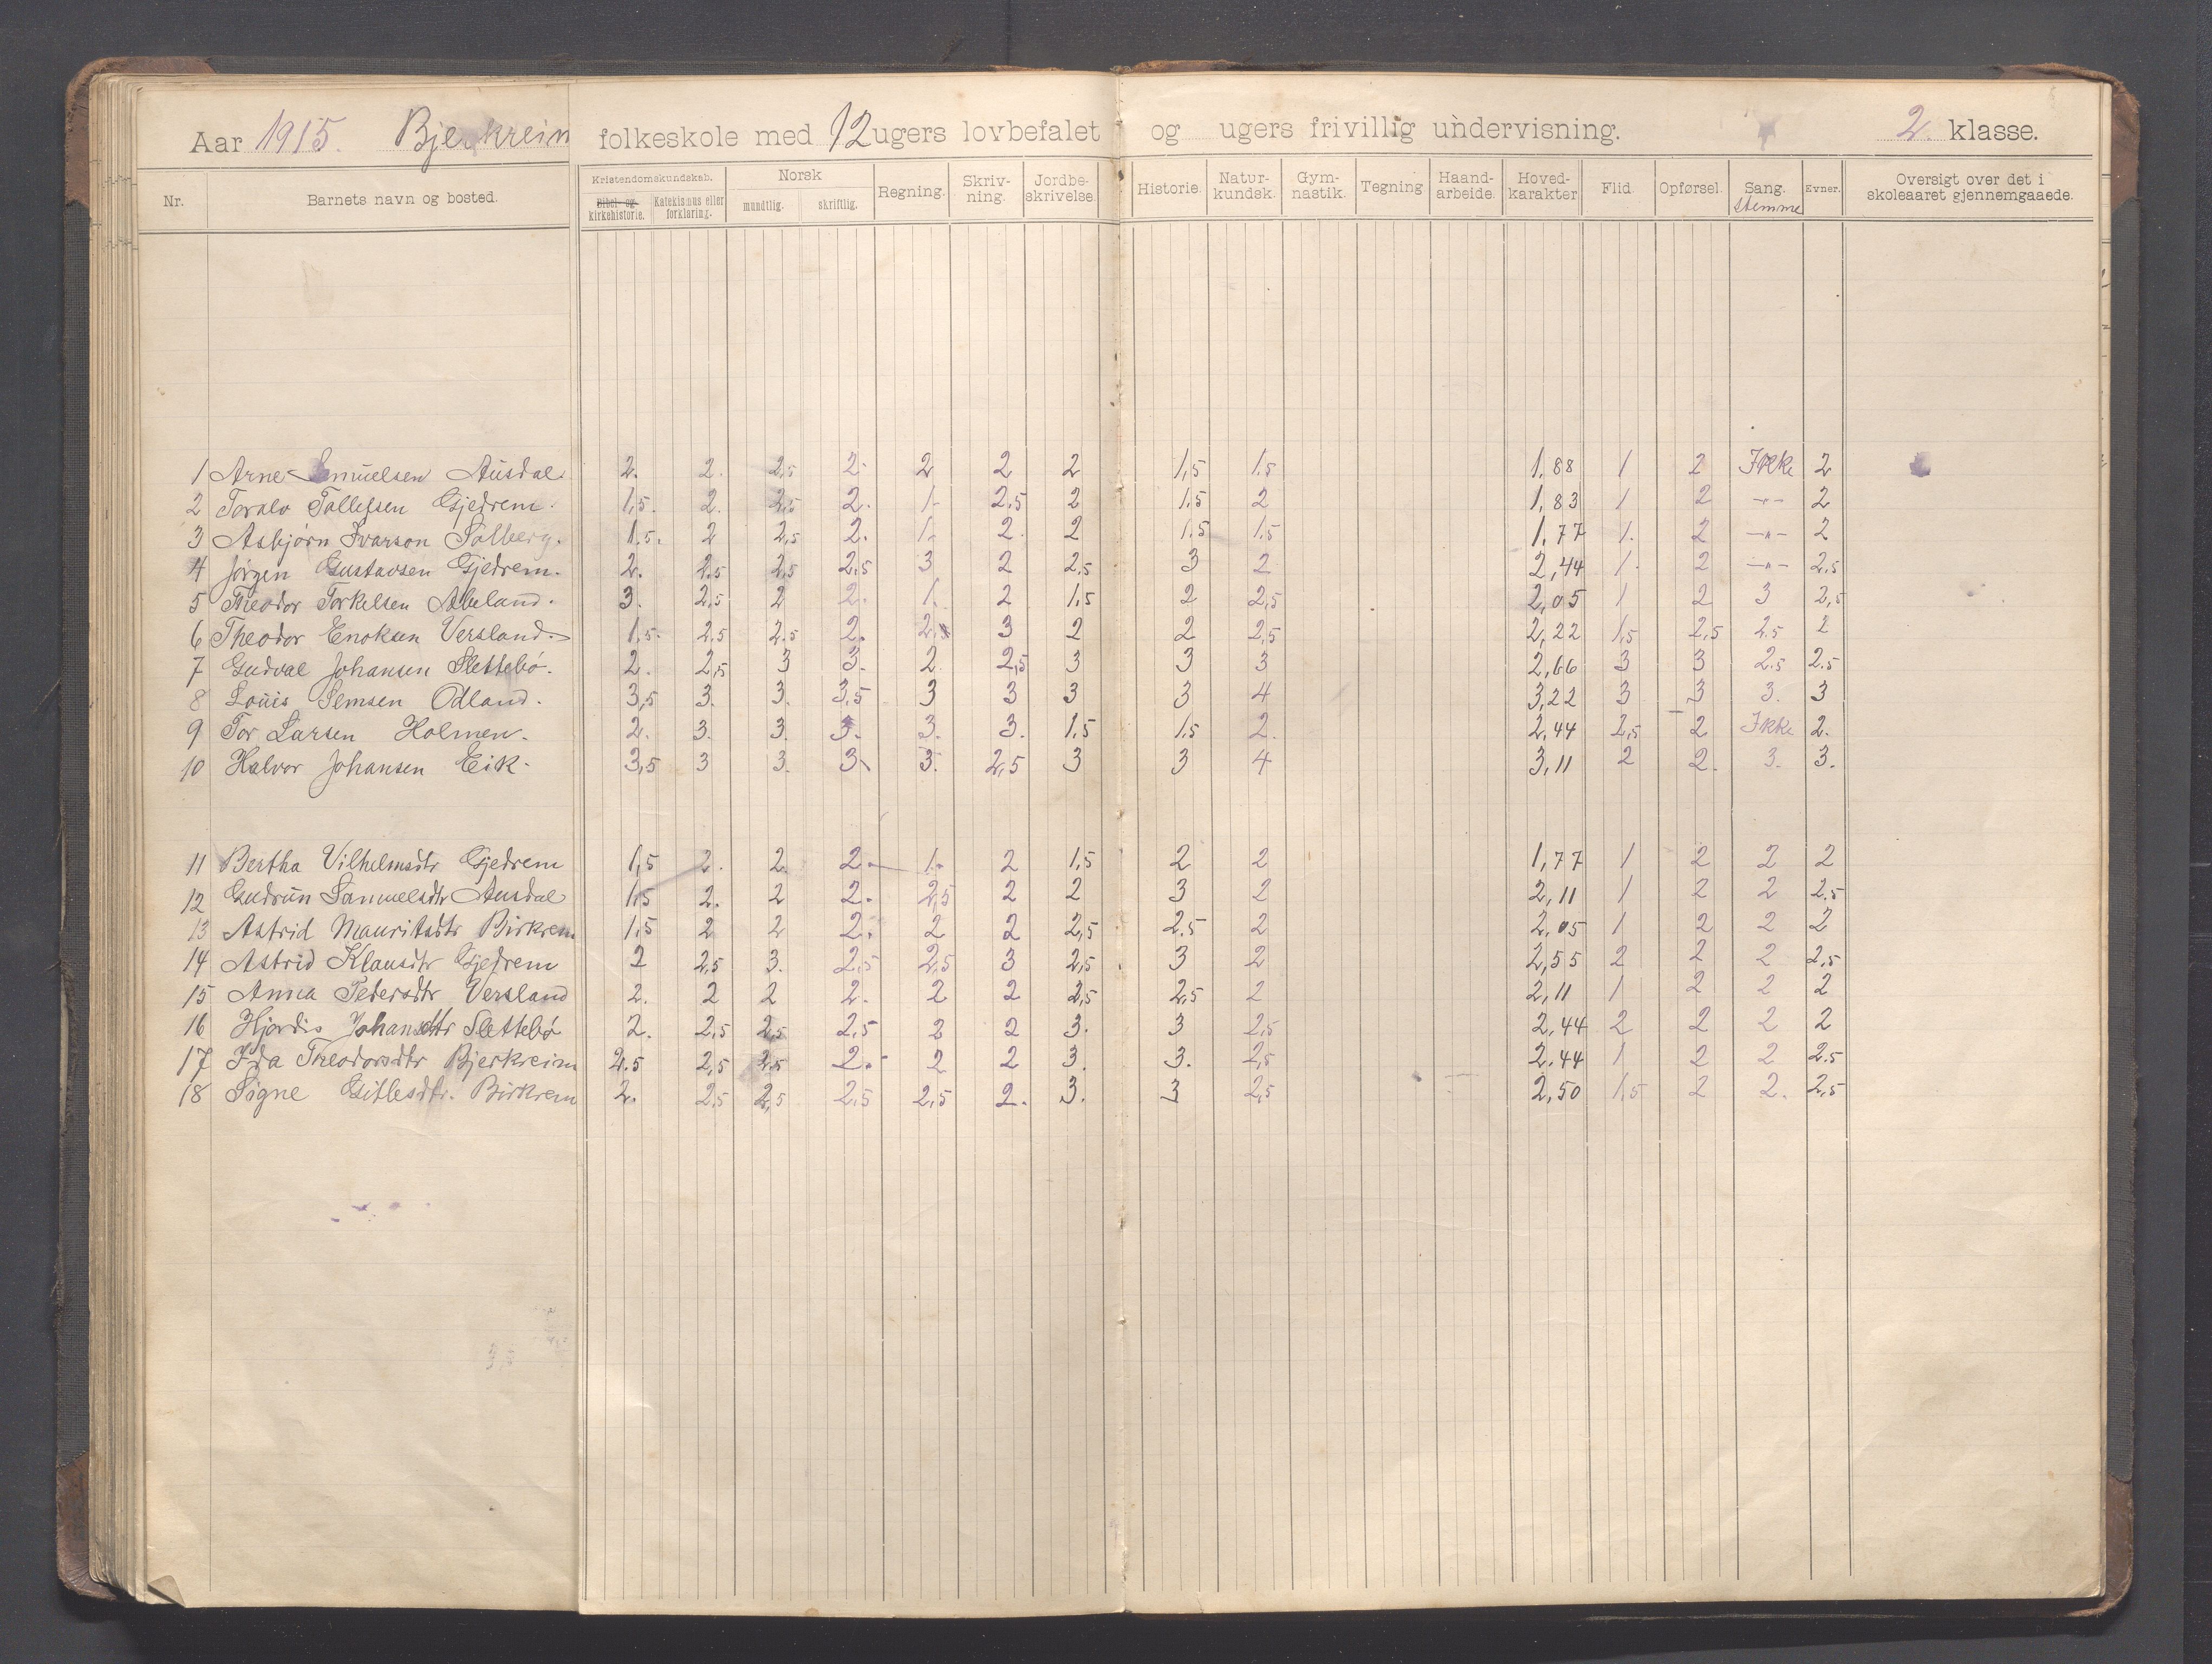 Aar 1915. Bjerkreim folkeskole med 12 ugers lovbefalet og ugers frivillig undervisning. 2. klasse.
Nr. Barnets navn og bosted. Kristendomskundskab. Bibel- og kirkehistorie. Katekismus eller forklaring. Norsk mundtlig. skriftlig. Regning. Skriv-ning. Jordbe-skrivelse. Historie. Natur-kundsk. Gym-nastik. Tegning Haand-arbeide. Hoved-karakter Flid. Opførsel. Sang. stemme Evner. Oversigt over det i skoleaaret gjennemgaaede.
1 Arne Samuelsen Ausdal 2. 2. 2,5 2. 2 2 2 1,5 1,5 1,88 1 2 Ikke 2
2 Toralv Tollefsen Gjedrem. 1,5. 2. 2,5 2. 1. 2,5 2 1,5 2 1,83 1 2 -"- 2
3 Asbjørn Ivarson Solberg. 1.5. 2 2,5 2. 1. 2. 2 1,5 1,5 1,77 1. 2 -"- 2
4 Jörgen Gustavsen Gjedrem. 2. 2.5 2,5 2,5 3 2 2,5 3 2 2,44 1. 2 -"- 2,5
5 Theodor Torkelsen Abeland. 3. 2,5 2 2. 1. 2 1,5 2 2,5 2,05 1 2 3 2,5
6 Theodor Enoksen Versland. 1,5. 2,5 2,5 2. 2,5 3 2 2 2,5 2,22 1,5 2,5 2,5 2
7 Gudval Johansen Slettebö. 2. 2,5 3 3. 2. 2,5 3 3 3 2,66 3 3 2.5 2.5
8 Louis Semsen Odland. 3,5 3. 3. 3,5 3 3 3 3 4 3,22 3 3 3. 3
9 Tor Larsen Holmen. 2. 3. 3. 3. 3. 3. 1,5 1,5 2. 2,44 2,5 2 Ikke 2.
10 Halvor Johansen Eik. 3,5 3 3. 3. 3. 2,5 3 3 4 3,11 2 2. 3. 3.
11 Bertha Vilhelmsdtr Gjedrem 1,5 2. 2. 2. 1. 2 1,5 2 2 1,77 1 2 2 2
12 Gudrun Samuelsdtr Ausdal 1,5 2. 2 2. 2,5 2 2 3 2 2,11 1 2 2 2.5
13 Astrid Mauritsdtr Birkrem 1,5 2 2 2. 2 2 2,5 2.5 2 2,05 1 2 2 2
14 Astrid Klausdtr Gjedrem 2 2,5 3. 2,5 2,5 3 2,5 3 2 2,55 2 2 2 2,5
15 Anna Pedersdtr Versland 2. 2 2 2. 2 2 2,5 2,5 2 2,11 1 2 2 2
16 Hjørdis Johansdtr Slettebø 2. 2,5 2,5 2,5 2 2 3. 3 2,5 2,44 2 2 2 2
17 Ida Theodorsdtr Bjerkreim 2.5 2,5 2.5 2. 2 2 3. 3. 2,5 2,44 1 2 2 2.5
18 Signe Gitlesdtr. Birkrem 2. 2,5 2,5 2,5 2,5 2. 3. 3 2,5 2,50 1,5 2 2. 2,5